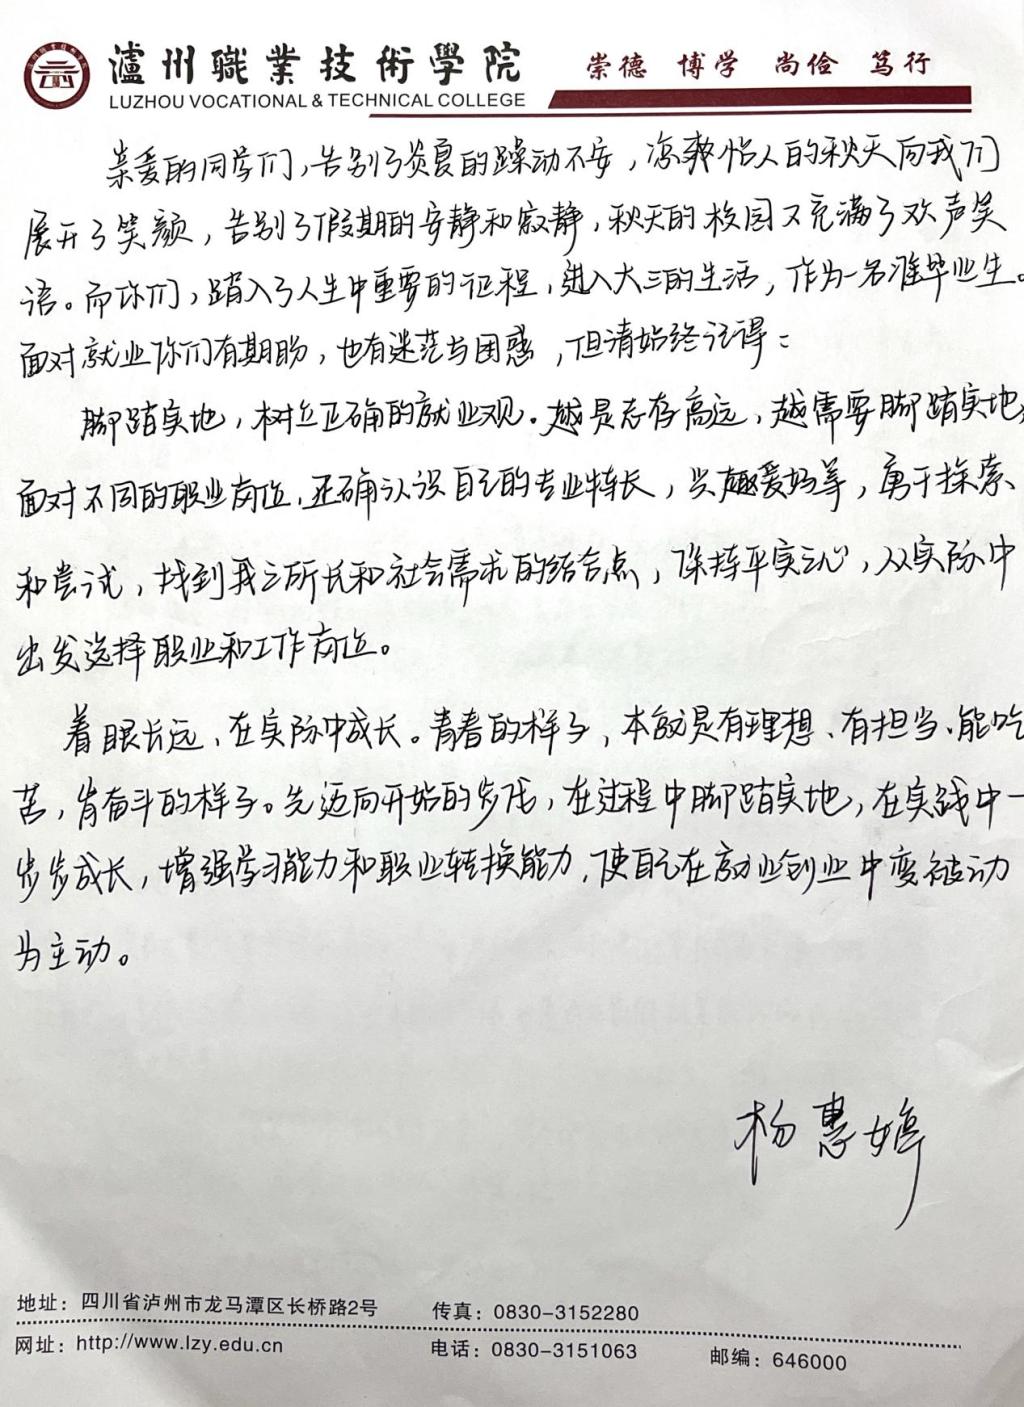 瀘州職業技術學院
崇德 博学 尚俭 笃行
LUZHOU VOCATIONAL & TECHNICAL COLLEGE
亲爱的同学们，告别了炎夏的躁动不安，凉爽怡人的秋天向我们
展开了笑颜，告别了假期的安静和寂静，秋天的校园又充满了欢声笑
语。而你们，踏入了人生中重要的征程，进入大三的生活，作为一名准毕业生。
面对就业你们有期盼，也有迷茫与困惑，但请始终记得：
脚踏实地，树立正确的就业观。越是志存高远，越需要脚踏实地，
面对不同的职业岗位、正确认识自己的专业特长，兴趣爱好等，勇于探索
和尝试，找到我之所长和社会需求的结合点，保持平实之心，从实际中
出发选择职业和工作岗位。
着眼长远、在实际中成长。青春的样子，本就是有理想、有担当、能吃
苦，肯奋斗的样子。先迈向开始的步伐，在过程中脚踏实地，在实践中一
步步成长，增强学习能力和职业转换能力，使自己在就业创业中变被动
为主动。
杨惠婷
地址：四川省泸州市龙马潭区长桥路2号 传真：0830-3152280
网址：http://www.lzy.edu.cn 电话：0830-3151063 邮编：646000